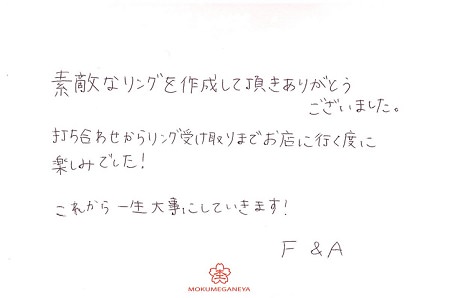 素敵なリングを作成して頂きありがとう
ございました。
打ち合わせからリング受け取りまでお店に行く度に
楽しみでした!
これから一生大事にしていきます!
F & A
MOKUMEGANEYA